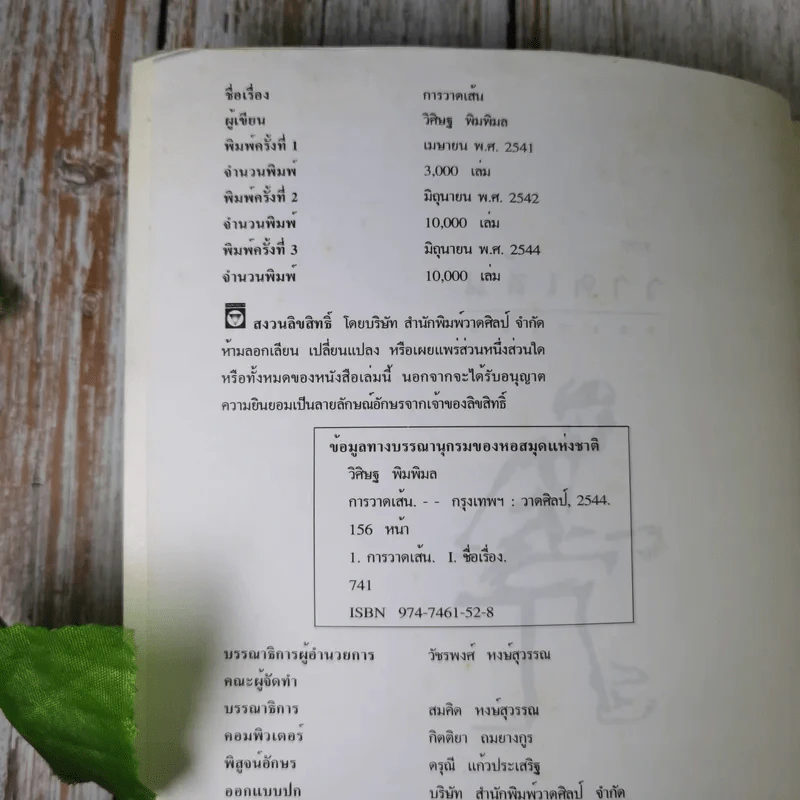 ชื่อเรื่อง การวาดเส้น
ผู้เขียน วิศิษฐ พิมพิมล
พิมพ์ครั้งที่ 1 เมษายน พ.ศ. 2541
จำนวนพิมพ์ 3,000 เล่ม
พิมพ์ครั้งที่ 2 มิถุนายน พ.ศ. 2542
จำนวนพิมพ์ 10,000 เล่ม
พิมพ์ครั้งที่ 3 มิถุนายน พ.ศ. 2544
จำนวนพิมพ์ 10,000 เล่ม
สงวนลิขสิทธิ์ โดยบริษัท สำนักพิมพ์วาดศิลป์ จำกัด
ห้ามลอกเลียน เปลี่ยนแปลง หรือเผยแพร่ส่วนหนึ่งส่วนใด
หรือทั้งหมดของหนังสือเล่มนี้ นอกจากจะได้รับอนุญาต
ความยินยอมเป็นลายลักษณ์อักษรจากเจ้าของลิขสิทธิ์
ข้อมูลทางบรรณานุกรมของหอสมุดแห่งชาติ
วิศิษฐ พิมพิมล
การวาดเส้น. - - กรุงเทพฯ : วาดศิลป์, 2544.
156 หน้า
1. การวาดเส้น. I. ชื่อเรื่อง.
741
ISBN 974-7461-52-8
บรรณาธิการผู้อำนวยการ วัชรพงศ์ หงษ์สุวรรณ
คณะผู้จัดทำ
บรรณาธิการ สมคิด หงษ์สุวรรณ
คอมพิวเตอร์ กิตติยา ถมยางกูร
พิสูจน์อักษร ดรุณี แก้วประเสริฐ
ออกแบบปก บริษัท สำนักพิมพ์วาดศิลป์ จำกัด